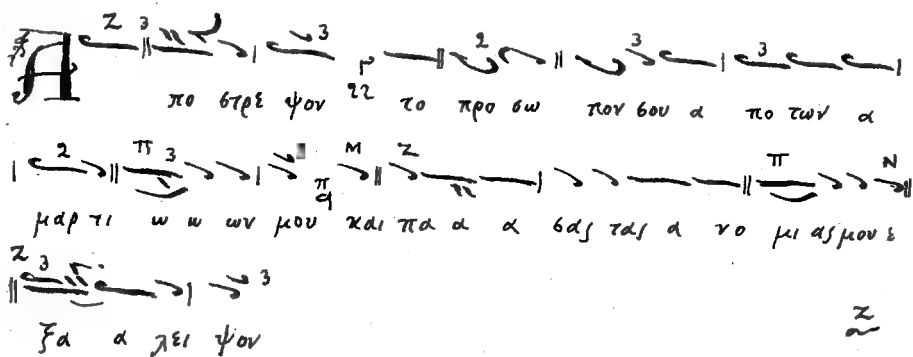 Α πο στρε ψον το προ σω πον σου α πο των α
μαρ τι ω ω ων μου και πα α α σας τας α νο μι ας μου ε
ξα α λει ψον